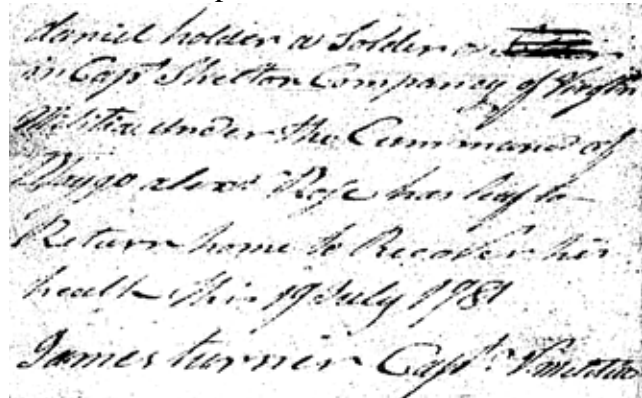 daniel holder a Solder
in Capt Shelton Compancy of Virgin
Militia under the Command of
Alexr Rose has leif to
Return home to Recover his
health this 19 July 1781
James turner Capt. V militia